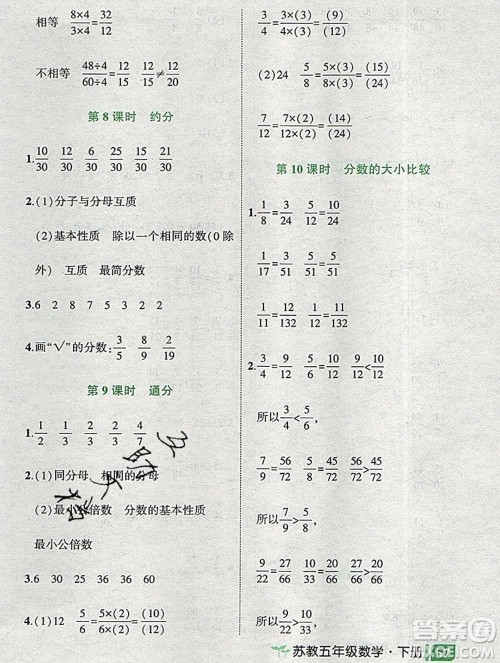 相等 8×4/3×4=32/12
不相等 48÷4/60÷4=12/15 12/15≠12/20
第 8 课时 约分
1. 10/30 12/30 6/30 25/30 15/30 21/30
2.(1)分子与分母互质
(2)基本性质 除以一个相同的数(0 除
外) 互质 最简分数
3.6 2 8 7 5 3 2 2
4.画“√”的分数:3/5 8/9 2/19
第 9 课时 通分
1. 1/2 1/3 2/3 2/3 4/7
2.(1)同分母 相同的分母
(2)最小公倍数 分数的基本性质
最小公倍数
3.6 30 36 36 60
4.(1)12 5/6=5×(2)/6×(2)=(10)/(12)
3/4=3×(3)/4×(3)=(9)/(12)
(2)24 5/8=5×(3)/8×(3)=(15)/(24)
7/12=7×(2)/12×(2)=(14)/(24)
第 10 课时 分数的大小比较
1. 1/8=3/24 5/24
1/17=3/51 5/51
1/11=12/132 11/132
2. 3/4=9/12 5/6=10/12 9/12<10/12
所以3/4<5/6,
7/9=56/72 5/8=45/72 56/72>45/72
所以7/9>5/8,
9/22=27/66 10/33=20/66 27/66>20/66
苏教五年级数学·下册